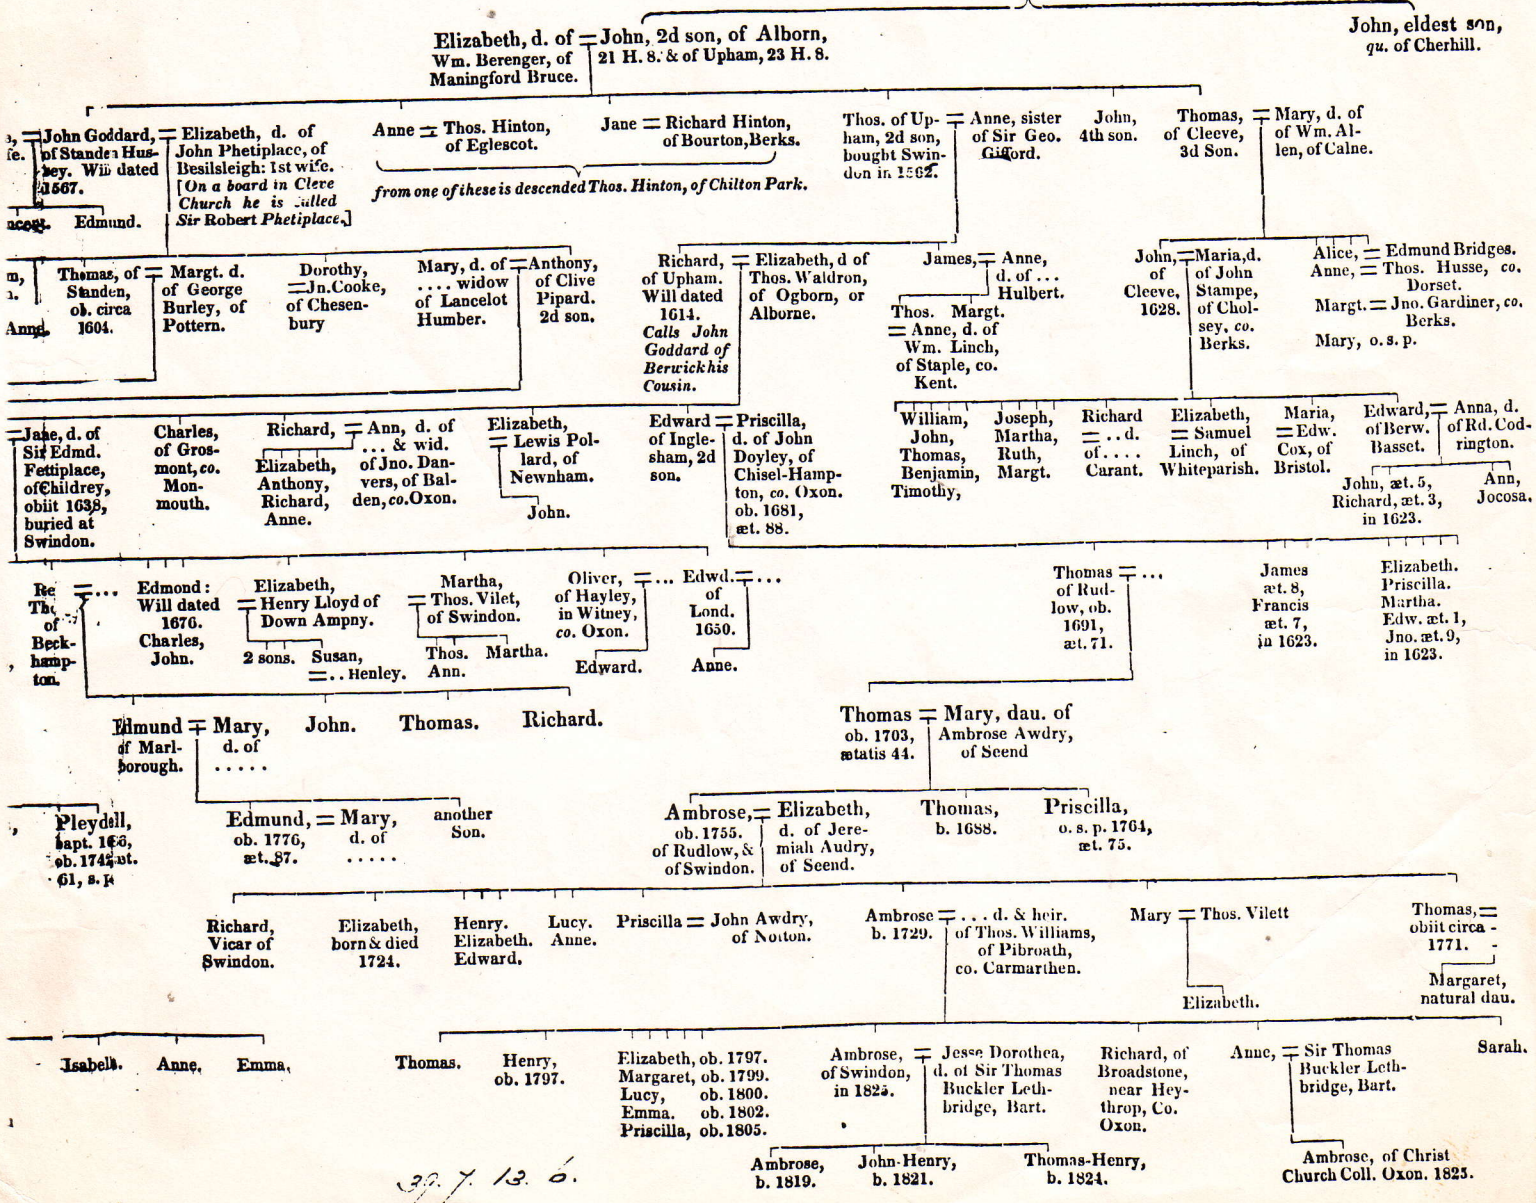 John, eldest son,
qu. of Cherhill.
Elizabeth, d. of = John, 2d son, of Alborn,
Wm. Berenger, of 21 H. 8. & of Upham, 23 H. 8.
Maningford Bruce.
John Goddard,
of Standen Hus-
sey. Will dated
1567.
Edmund.
= Elizabeth, d. of
John Phetiplace, of
Besilsleigh: 1st wife.
[On a board in Cleve
Church he is called
Sir Robert Phetiplace.]
Anne = Thos. Hinton,
of Eglescot.
Jane = Richard Hinton,
of Bourton, Berks.
from one of these is descended Thos. Hinton, of Chilton Park.
Thos. of Up-
ham, 2d son,
bought Swin-
don in 1562.
= Anne, sister
of Sir Geo.
Gifford.
John,
4th son.
Thomas,
of Cleeve,
3d Son.
= Mary, d. of
of Wm. Al-
len, of Calne.
Thomas, of
Standen,
ob. circa
1604.
= Margt. d.
of George
Burley, of
Pottern.
Dorothy,
= Jn. Cooke,
of Chesen-
bury
Mary, d. of
.... widow
of Lancelot
Humber.
= Anthony,
of Clive
Pipard.
2d son.
Richard,
of Upham.
Will dated
1614.
Calls John
Goddard of
Berwick his
Cousin.
= Elizabeth, d of
Thos. Waldron,
of Ogborn, or
Alborne.
James, = Anne,
d. of ...
Hulbert.
Thos. Margt.
= Anne, d. of
Wm. Linch,
of Staple, co.
Kent.
John,
of
Cleeve,
1628.
= Maria, d.
of John
Stampe,
of Chol-
sey, co.
Berks.
Alice, = Edmund Bridges.
Anne, = Thos. Husse, co.
Dorset.
Margt. = Jno. Gardiner, co.
Berks.
Mary, o. s. p.
= Jane, d. of
Sir Edmd.
Fettiplace,
of Childrey,
obiit 1638,
buried at
Swindon.
Charles,
of Gros-
mont, co.
Mon-
mouth.
Richard, = Ann, d. of
... & wid.
of Jno. Dan-
vers, of Bal-
den, co. Oxon.
Elizabeth,
Anthony,
Richard,
Anne.
Elizabeth,
= Lewis Pol-
lard, of
Newnham.
John.
Edward
of Ingle-
sham, 2d
son.
= Priscilla,
d. of John
Doyley, of
Chisel-Hamp-
ton, co. Oxon.
ob. 1681,
æt. 88.
William,
John,
Thomas,
Benjamin,
Timothy,
Joseph,
Martha,
Ruth,
Margt.
Richard
= .. d.
of ....
Carant.
Elizabeth,
= Samuel
Linch, of
Whiteparish.
Maria,
= Edw.
Cox, of
Bristol.
Edward,
of Berw.
Basset.
= Anna, d.
of Rd. Cod-
rington.
John, æt. 5,
Richard, æt. 3,
in 1623.
Ann,
Jocosa.
= ...
of
Beck-
hamp-
ton.
Edmond:
Will dated
1676.
Charles,
John.
Elizabeth,
= Henry Lloyd of
Down Ampny.
2 sons. Susan,
= .. Henley.
Martha,
= Thos. Vilet,
of Swindon.
Thos. Martha.
Ann.
Oliver, = ...
of Hayley,
in Witney,
co. Oxon.
Edward.
Edwd. = ...
of
Lond.
1650.
Anne.
Thomas = ...
of Rud-
low, ob.
1691,
æt. 71.
James
æt. 8,
Francis
æt. 7,
in 1623.
Elizabeth.
Priscilla.
Martha.
Edw. æt. 1,
Jno. æt. 9,
in 1623.
Edmund
of Marl-
borough.
= Mary,
d. of
.....
John. Thomas. Richard.
Thomas
ob. 1703,
ætatis 44.
= Mary, dau. of
Ambrose Awdry,
of Seend
Pleydell,
bapt.
61, s. p
Edmund,
ob. 1776,
æt. 87.
= Mary,
d. of
.....
another
Son.
Ambrose,
ob. 1755.
of Rudlow, &
of Swindon.
= Elizabeth,
d. of Jere-
miah Audry,
of Seend.
Thomas,
b. 1688.
Priscilla,
o. s. p. 1764,
æt. 75.
Richard,
Vicar of
Swindon.
Elizabeth,
born & died
1724.
Henry.
Elizabeth.
Edward.
Lucy.
Anne.
Priscilla = John Awdry,
of Notton.
Ambrose
b. 1729.
= ... d. & heir.
of Thos. Williams,
of Pibroath,
co. Carmarthen.
Mary = Thos. Vilett
Elizabeth.
Thomas, =
obiit circa -
1771. -
Margaret,
natural dau.
Isabell. Anne. Emma.
Thomas.
Henry,
ob. 1797.
Elizabeth, ob. 1797.
Margaret, ob. 1799.
Lucy, ob. 1800.
Emma. ob. 1802.
Priscilla, ob. 1805.
Ambrose,
of Swindon,
in 1825.
= Jesse Dorothea,
d. of Sir Thomas
Buckler Leth-
bridge, Bart.
Richard, of
Broadstone,
near Hey-
throp, Co.
Oxon.
Anne, = Sir Thomas
Buckler Leth-
bridge, Bart.
Sarah.
Ambrose,
b. 1819.
John-Henry,
b. 1821.
Thomas-Henry,
b. 1824.
Ambrose, of Christ
Church Coll. Oxon. 1825.
39. 7. 13. 6.